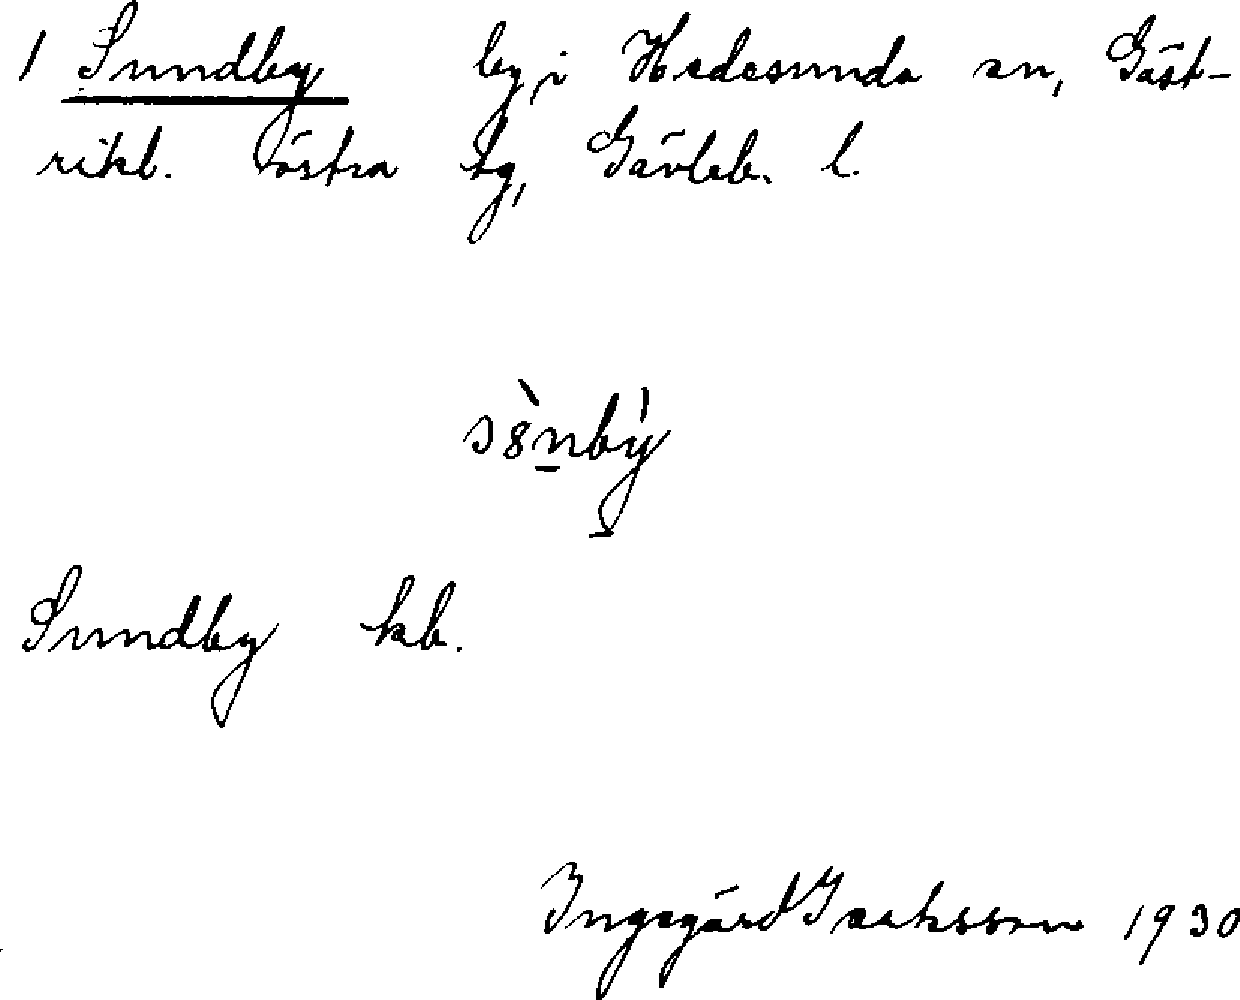 1 Sundby by, i Hedesunda sn, Gäst-
rikl. östra tg, Gävleb. l.
Sundby kb.
Ingegärd Isaksson 1930